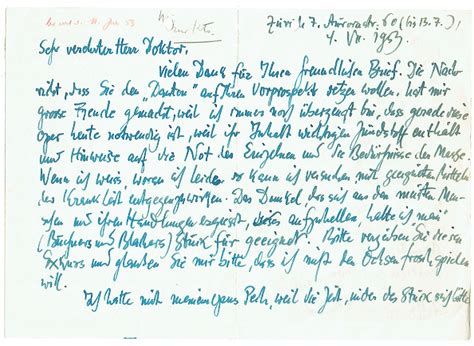 Zürich 7, Aurorastr. 60 (bis 13.7.),
4. VII. 1953
Sehr verehrter Herr Doktor.
Vielen Dank für Ihren freundlichen Brief. Die Nach-
richt, dass Sie den „Danton" auf Ihren Vorprospekt setzen wollen, hat mir
grosse Freude gemacht, weil ich immer noch überzeugt bin, dass gerade diese
Oper heute notwendig ist, weil ihr Inhalt wichtigen Zündstoff enthält
und Hinweise auf die Not des Einzelnen und die Bedürfnisse der Masse.
Wenn ich weiss, woran ich leide, so kann ich versuchen mit geeigneten Mitteln
der Krankheit entgegenzuwirken. Das Dunkel, das sich aus den meisten Men-
schen und ihren Handlungen ergiesst, aufzuhellen, halte ich mein
(Büchners und Blachers) Stück für geeignet. Bitte verzeihen Sie diesen
Exkurs und glauben Sie mir bitte, dass ich nicht den Ochsenfrosch spielen
will.
Ich hatte mit meinem Pech, weil die Zeit, in der das Stück sich